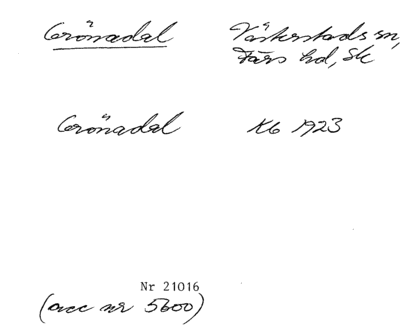 Grönadal Väsketads sn,
Färs hd, Sk
Grönadal Kb 1923
Nr 21016
(acc nr 5600)